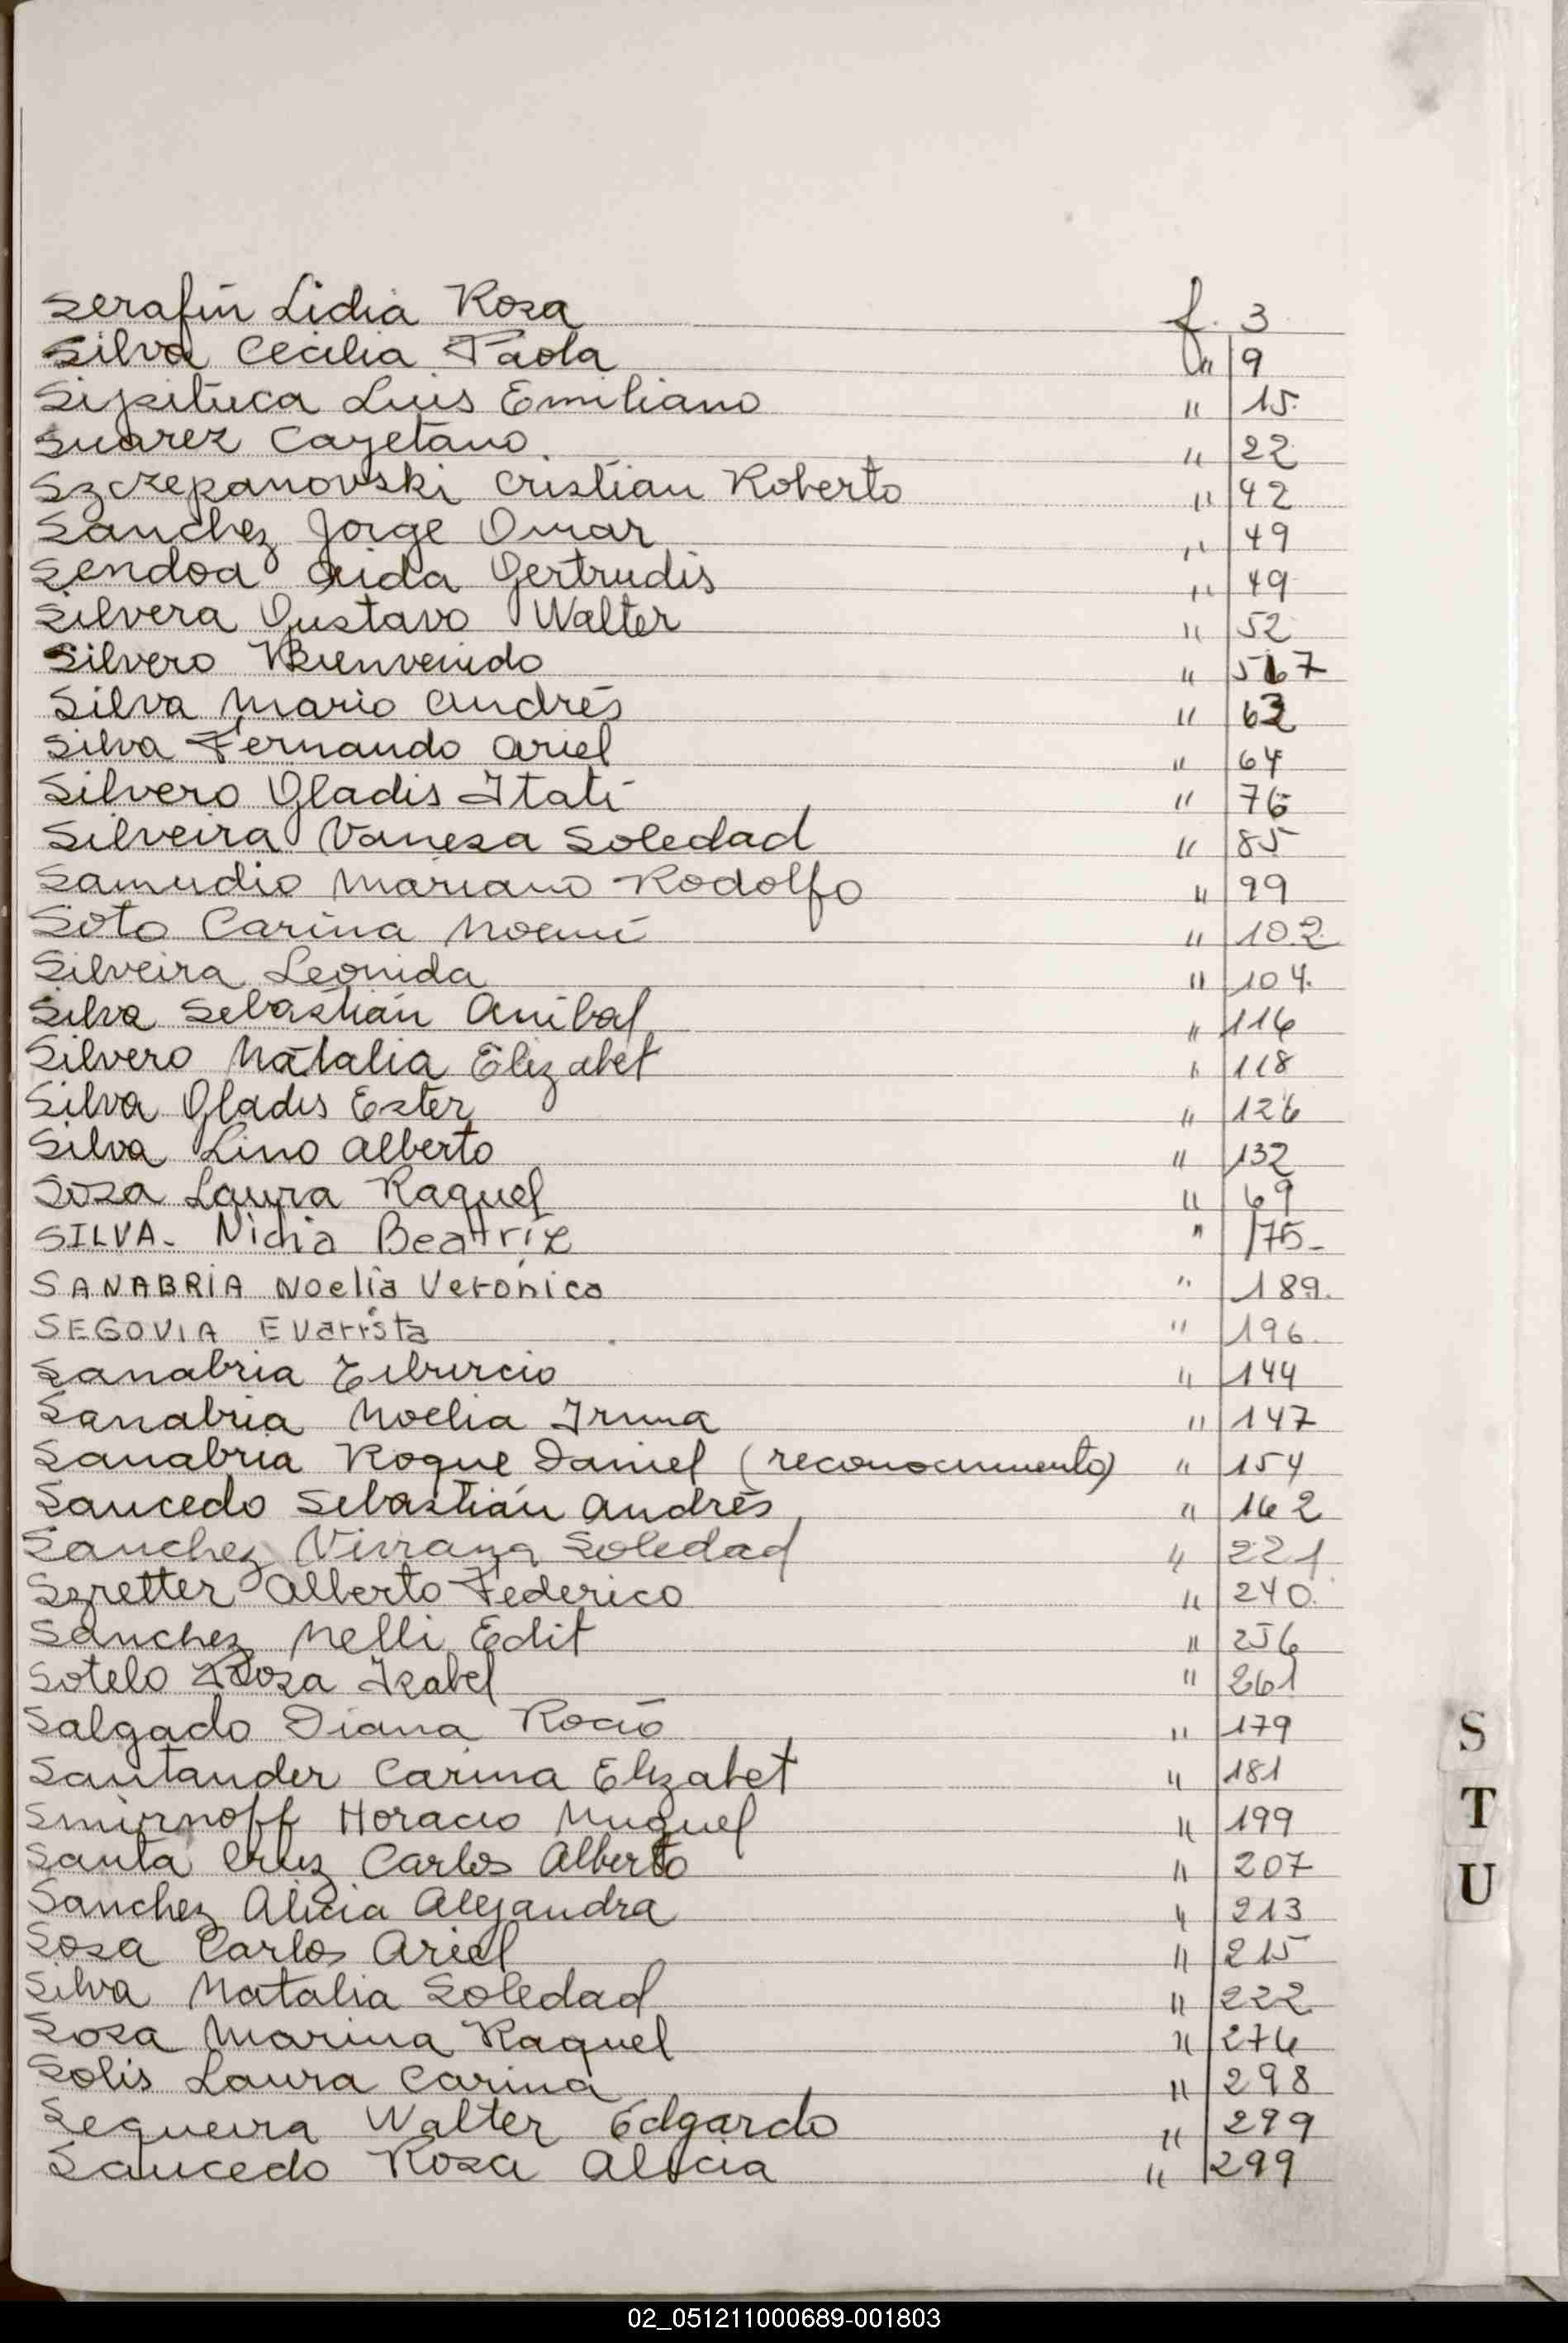 Serafín Lidia Rosa f. 3
Silva Cecilia Paola " 9
Sipituca Luis Emiliano " 15.
Suarez Cayetano " 22
Szczepanovski Cristian Roberto " 42
Sanchez Jorge Omar " 49
Sendoa Aida Gertrudis " 49
Silvera Gustavo Walter " 52
Silvero Bienvenido "
Silva Mario Andrés "
Silva Fernando Ariel " 64
Silvero Gladis Itatí " 76
Silveira Vanesa Soledad " 85
Samudio Mariano Rodolfo " 99
Soto Carina Noemí " 102
Silveira Leonida " 104.
Silva Sebastián Anibal " 116
Silvero Natalia Elizabet " 118
Silva Gladis Ester " 126
Silva Lino Alberto " 132
Sosa Laura Raquel " 69
SILVA- Nidia Beatríz " 175-
SANABRIA Noelia Verónica " 189.
SEGOVIA Evarista " 196.
Sanabria Tiburcio " 144
Sanabria Noelia Irma " 147
Sanabria Roque Daniel (reconocimiento) " 154
Saucedo Sebastián Andrés " 162
Sanchez Viviana Soledad " 221
Szretter Alberto Federico " 240.
Sanchez Nelli Edit " 256
Sotelo Rosa Isabel " 261
Salgado Diana Rocío " 179
Santander Carina Elizabet " 181
Smirnoff Horacio Miguel " 199
Santa Cruz Carlos Alberto " 207
Sanchez Alicia Alejandra " 213
Sosa Carlos Ariel " 215
Silva Natalia Soledad " 222
Sosa Marina Raquel " 276
Solis Laura Carina " 298
Sequeira Walter Edgardo " 299
Saucedo Rosa Alicia " 299
S
T
U
02_051211000689-001803